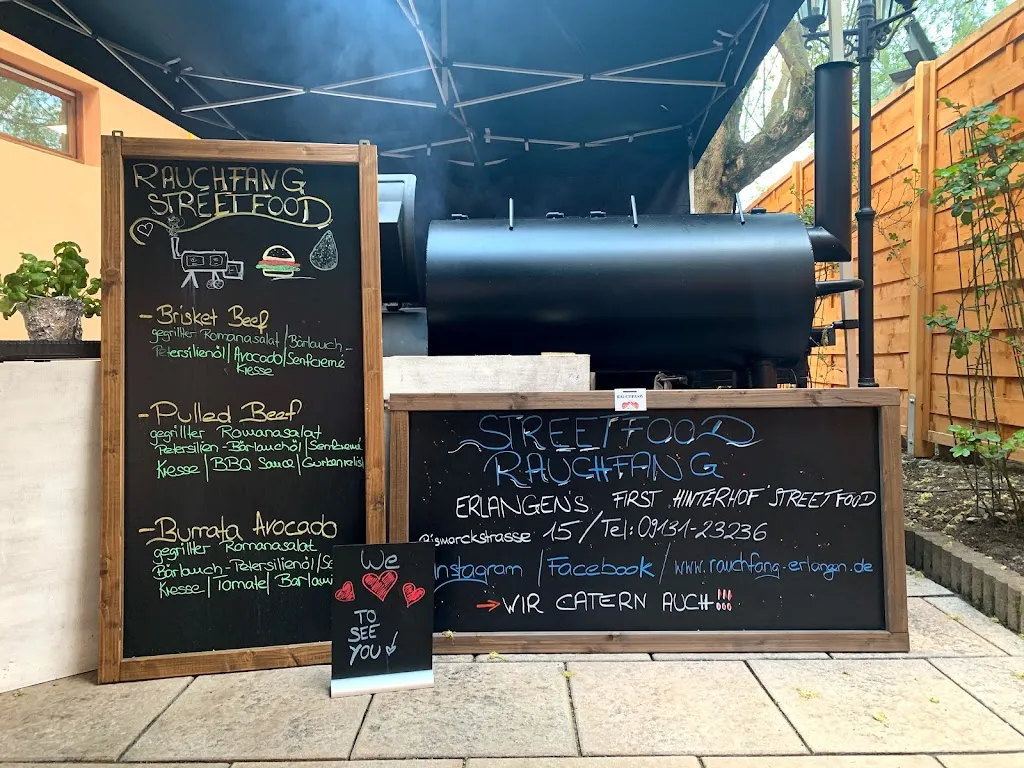 RAUCHFANG
STREETFOOD
- Brisket Beef
gegrillter Romanasalat / Bärlauch-
Petersilienöl / Avocado / Senfcreme
Kresse
- Pulled Beef
gegrillter Romanasalat
Petersilien-Bärlauchöl / Senfcreme
Kresse / BBQ Sauce / Gurkenrelish
- Burrata Avocado
gegrillter Romanasalat
Bärlauch-Petersilienöl / Se
Kresse / Tomate /
We
TO
SEE
YOU
STREETFOOD
RAUCHFANG
ERLANGEN'S FIRST "HINTERHOF" STREETFOOD
Bismarckstrasse 15 / Tel: 09131-23236
Instagram / Facebook / www.rauchfang-erlangen.de
→ WIR CATERN AUCH!!!